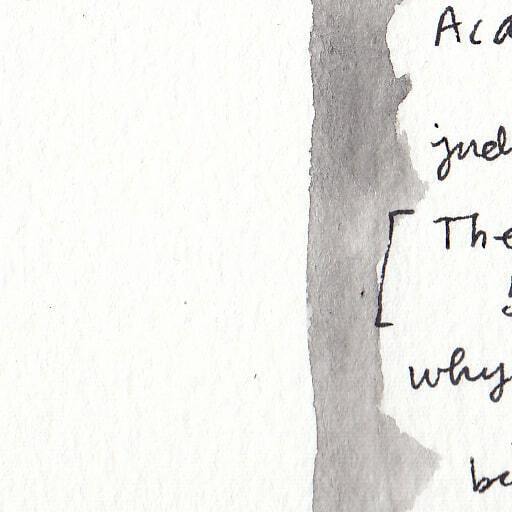 Aca
jud
The
why
be